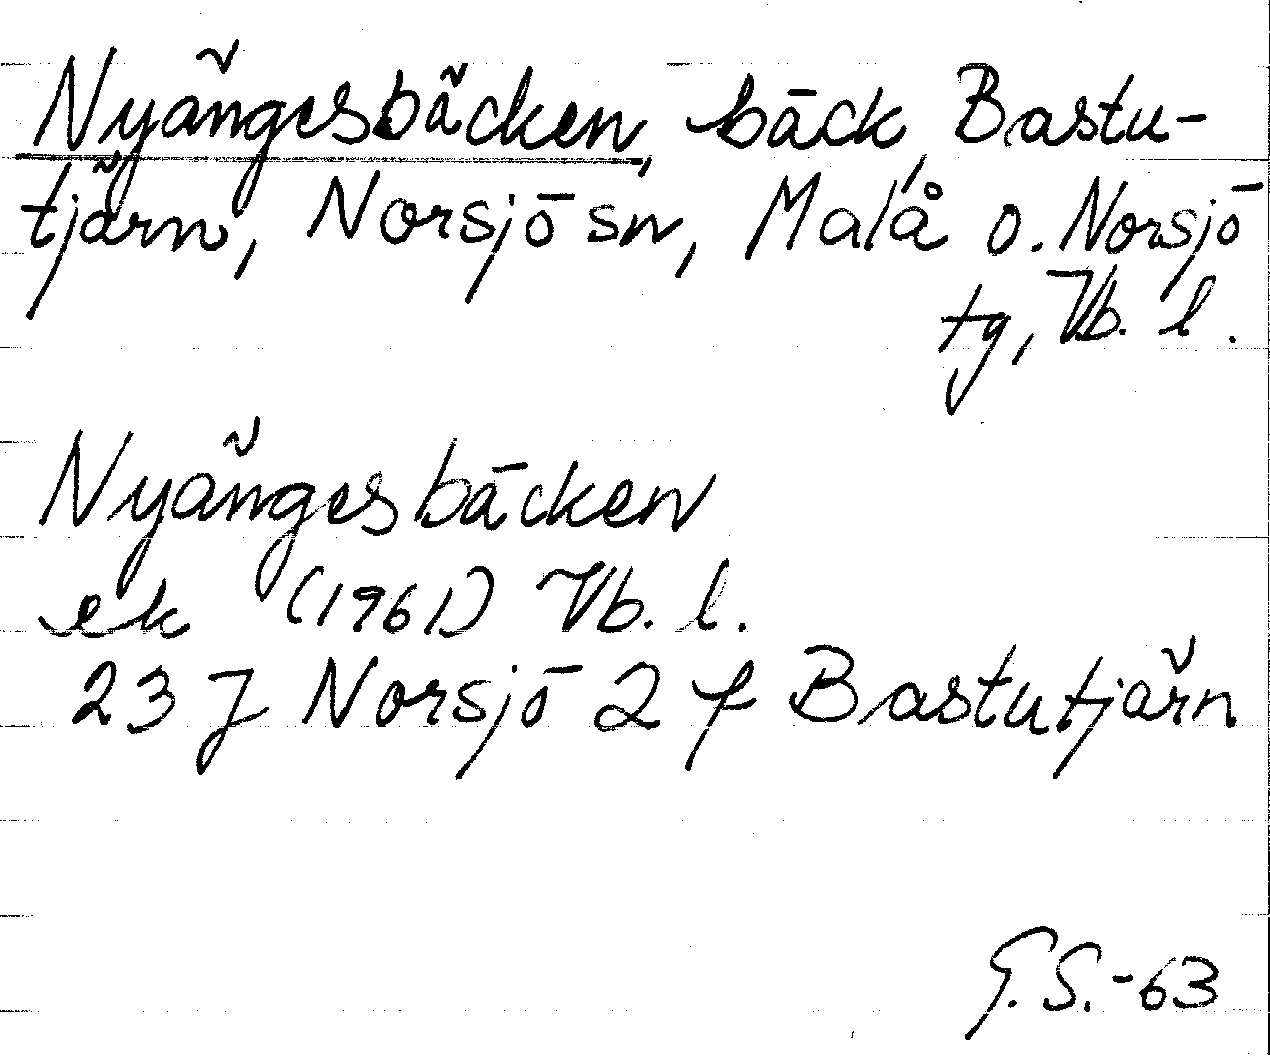 Nyängesbäcken, bäck, Bastu-
tjärn, Norsjö sn, Malå o. Norsjö
tg, Vb. l.
Nyängesbäcken
ek (1961) Vb. l.
23 J Norsjö 2 f Bastutjärn
G.S.-63